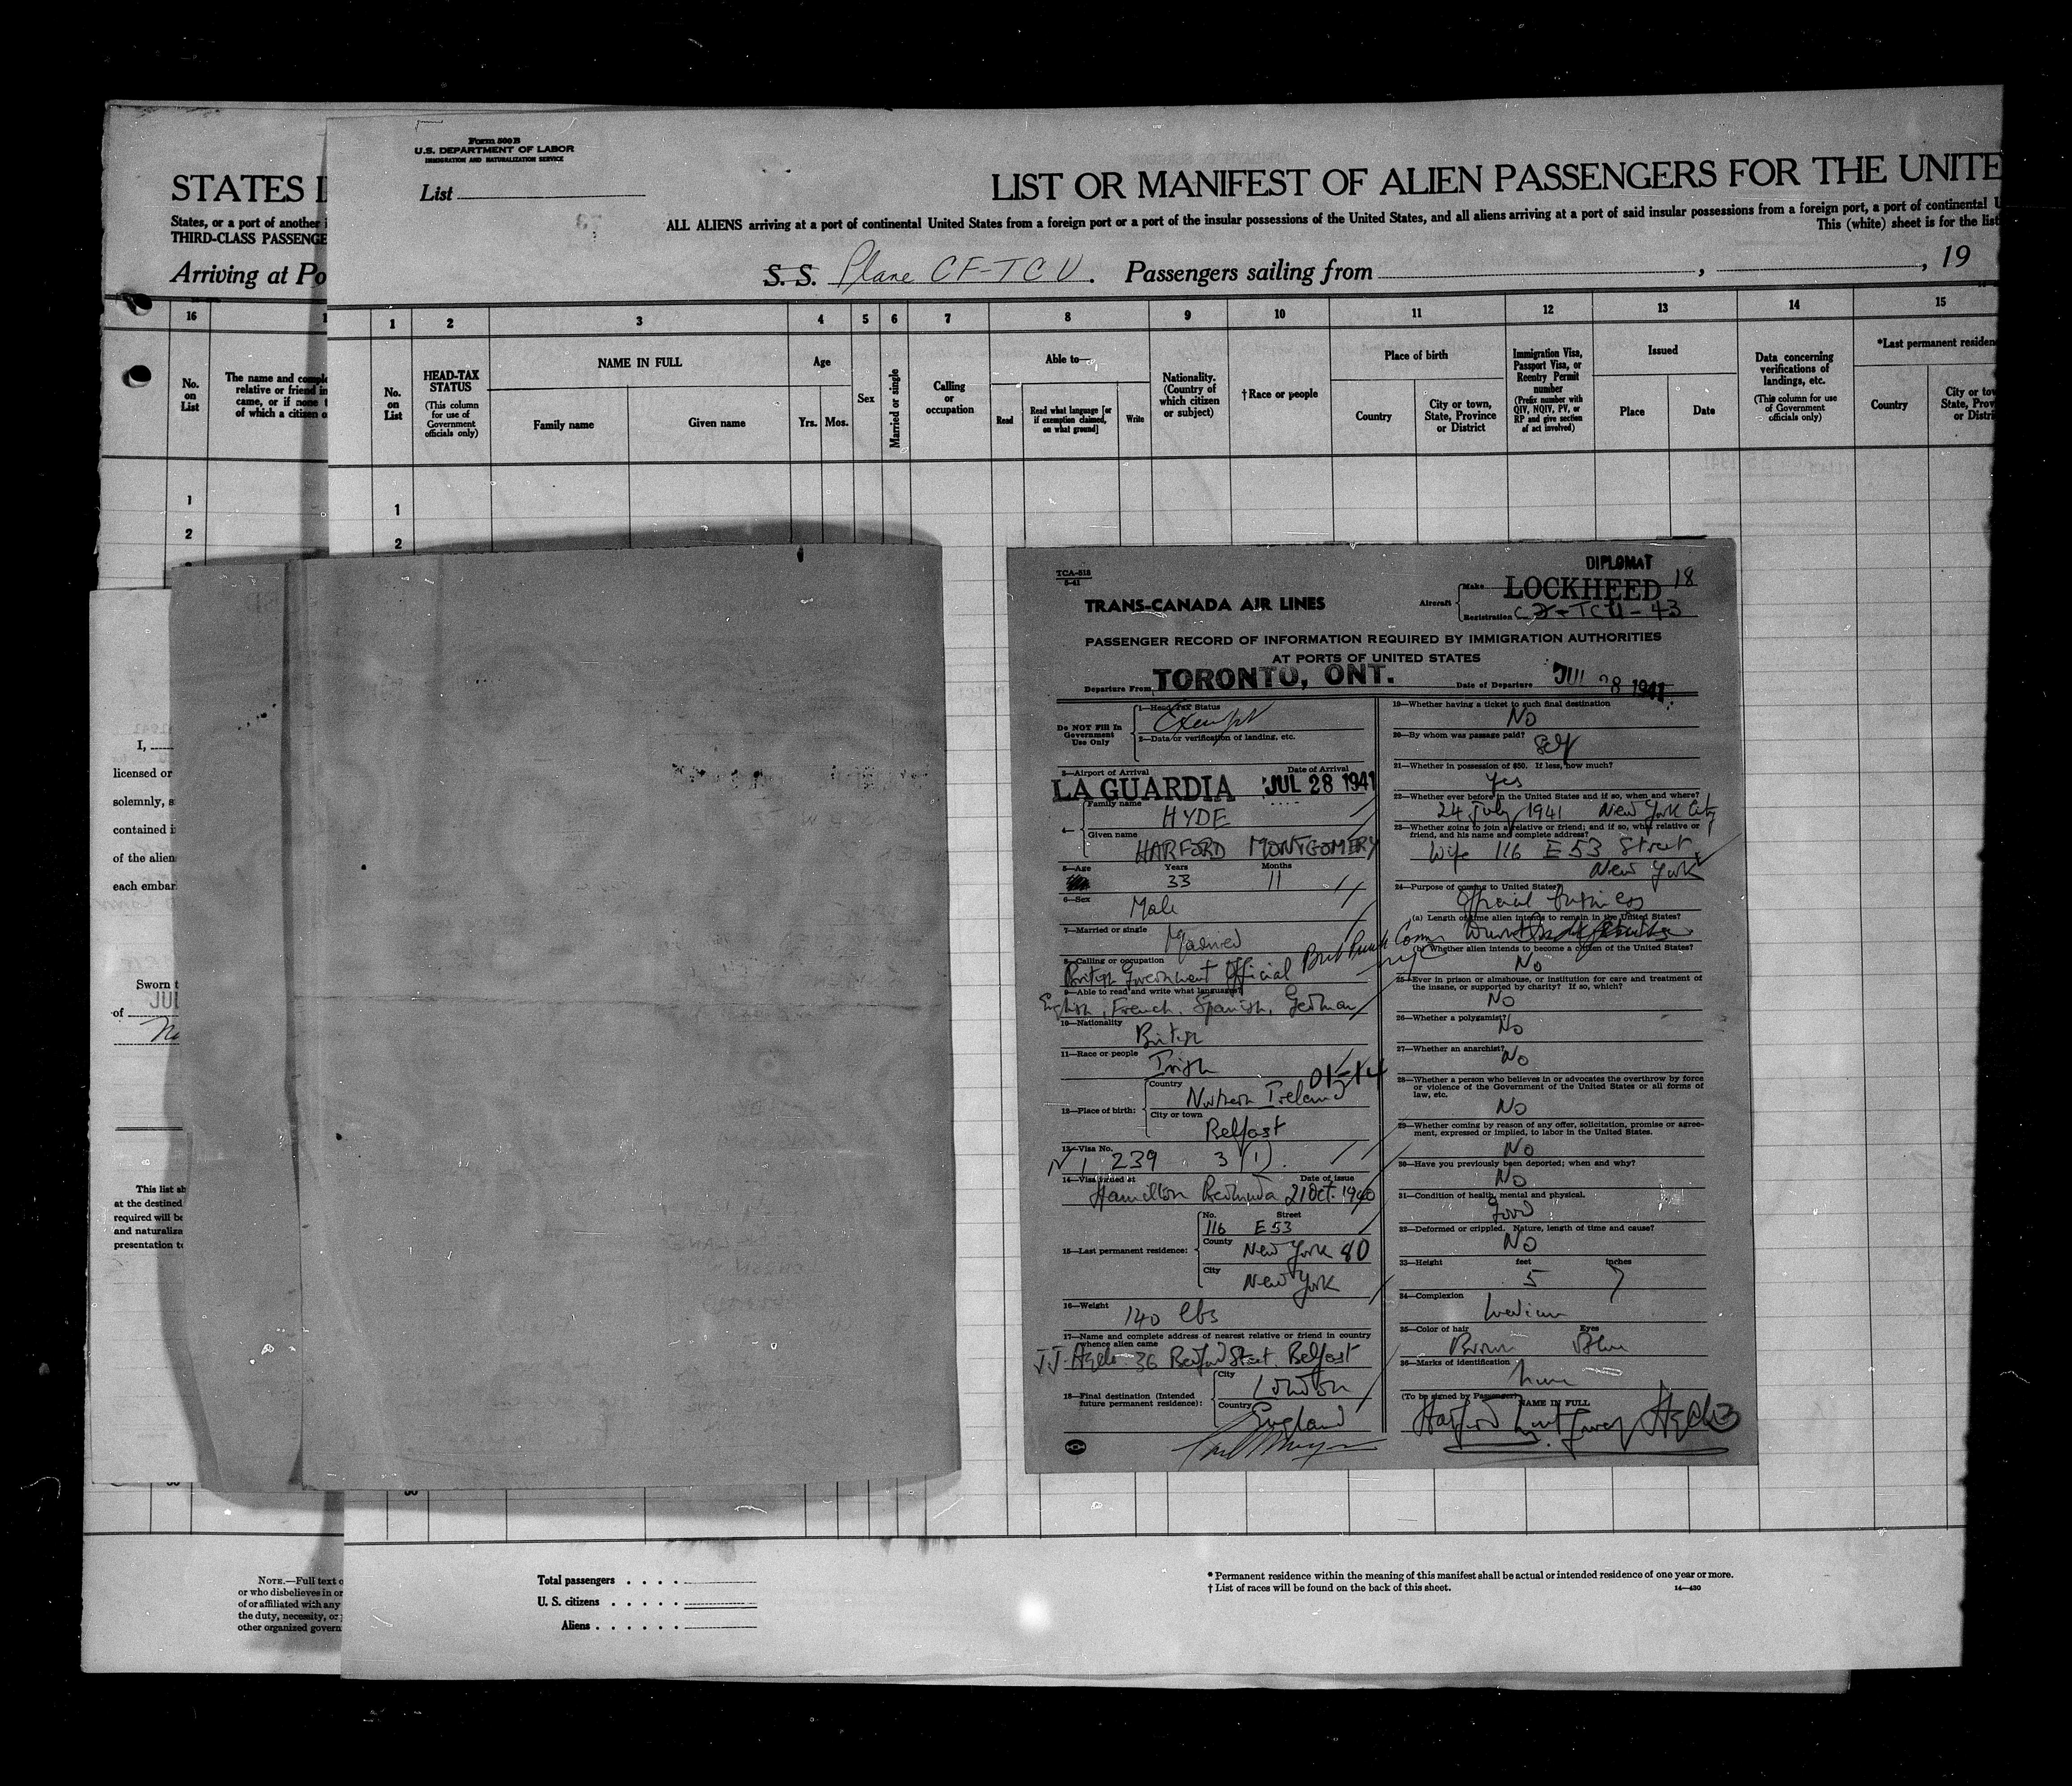 STATES
States, or a port of another
THIRD-CLASS PASSENGE
Arriving at Po
16
No. on List
The name and comple
relative or friend in
came, or if none
of which a citizen o
1
2
I,
licensed or
solemnly, s
contained i
of the alien
each embar
Sworn t
JUL
of
This list sh
at the destined
required will be
and naturaliza
presentation to
NOTE.—Full text o
or who disbelieves in or
of or affiliated with any
the duty, necessity, or
other organized govern
Form 500 B
U.S. DEPARTMENT OF LABOR
IMMIGRATION AND NATURALIZATION SERVICE
List
LIST OR MANIFEST OF ALIEN PASSENGERS FOR THE UNITE
ALL ALIENS arriving at a port of continental United States from a foreign port or a port of the insular possessions of the United States, and all aliens arriving at a port of said insular possessions from a foreign port, a port of continental U
This (white) sheet is for the list
S. S. Plane CF-TCU. Passengers sailing from , , 19
1 2 3 4 5 6 7 8 9 10 11 12 13 14 15
No. on List
HEAD-TAX STATUS
(This column for use of Government officials only)
NAME IN FULL
Family name Given name
Age
Yrs. Mos.
Sex
Married or single
Calling or occupation
Able to—
Read
Read what language [or if exemption claimed, on what ground]
Write
Nationality. (Country of which citizen or subject)
†Race or people
Place of birth
Country
City or town, State, Province or District
Immigration Visa, Passport Visa, or Reentry Permit number
(Prefix number with QIV, NQIV, PV, or RP and give section of act involved)
Issued
Place Date
Data concerning verifications of landings, etc.
(This column for use of Government officials only)
*Last permanent residen
Country
City or tow
State, Prov
or Distri
1
2
TCA-518
5-41
DIPLOMAT
TRANS-CANADA AIR LINES
Aircraft Make LOCKHEED 18
Registration CF-TCU-43
PASSENGER RECORD OF INFORMATION REQUIRED BY IMMIGRATION AUTHORITIES
AT PORTS OF UNITED STATES
Departure From TORONTO, ONT. Date of Departure JUL 28 1941
Do NOT Fill In Government Use Only
1—Head Tax Status
Exempt
2—Data or verification of landing, etc.
3—Airport of Arrival Date of Arrival
LA GUARDIA JUL 28 1941
4— Family name
HYDE
Given name
HARFORD MONTGOMERY
5—Age Years Months
33 11
6—Sex
Male
7—Married or single
Married
8—Calling or occupation
British Government Official
9—Able to read and write what languages?
English, French, Spanish, German
10—Nationality
British
11—Race or people
Irish
01-14
12—Place of birth:
Country
Northern Ireland
City or town
Belfast
13—Visa No.
239 3 (1).
14—Visa issued at Date of issue
Hamilton Bermuda 21 Oct. 1940
15—Last permanent residence:
No. Street
116 E 53
County
New York 80
City
New York
16—Weight
140 lbs
17—Name and complete address of nearest relative or friend in country
whence alien came
J.J. Hyde 36 Bedford Street. Belfast
18—Final destination (Intended
future permanent residence):
City
London
Country
England
19—Whether having a ticket to such final destination
No
20—By whom was passage paid?
Self
21—Whether in possession of $50. If less, how much?
Yes
22—Whether ever before in the United States and if so, when and where?
24 July 1941 New York City
23—Whether going to join a relative or friend; and if so, what relative or
friend, and his name and complete address?
Wife 116 E 53 Street,
New York
24—Purpose of coming to United States?
Official business
(a) Length of time alien intends to remain in the United States?
(b) Whether alien intends to become a citizen of the United States?
No
25—Ever in prison or almshouse, or institution for care and treatment of
the insane, or supported by charity? If so, which?
No
26—Whether a polygamist?
No
27—Whether an anarchist?
No
28—Whether a person who believes in or advocates the overthrow by force
or violence of the Government of the United States or all forms of
law, etc.
No
29—Whether coming by reason of any offer, solicitation, promise or agree-
ment, expressed or implied, to labor in the United States.
No
30—Have you previously been deported; when and why?
No
31—Condition of health, mental and physical.
Good
32—Deformed or crippled. Nature, length of time and cause?
No
33—Height feet inches
5 7
34—Complexion
Medium
35—Color of hair Eyes
Brown Blue
36—Marks of identification
None
(To be signed by Passenger) NAME IN FULL
Harford Montgomery Hyde
Total passengers . . . .
U. S. citizens . . . . .
Aliens . . . . . .
* Permanent residence within the meaning of this manifest shall be actual or intended residence of one year or more.
† List of races will be found on the back of this sheet. 14—430